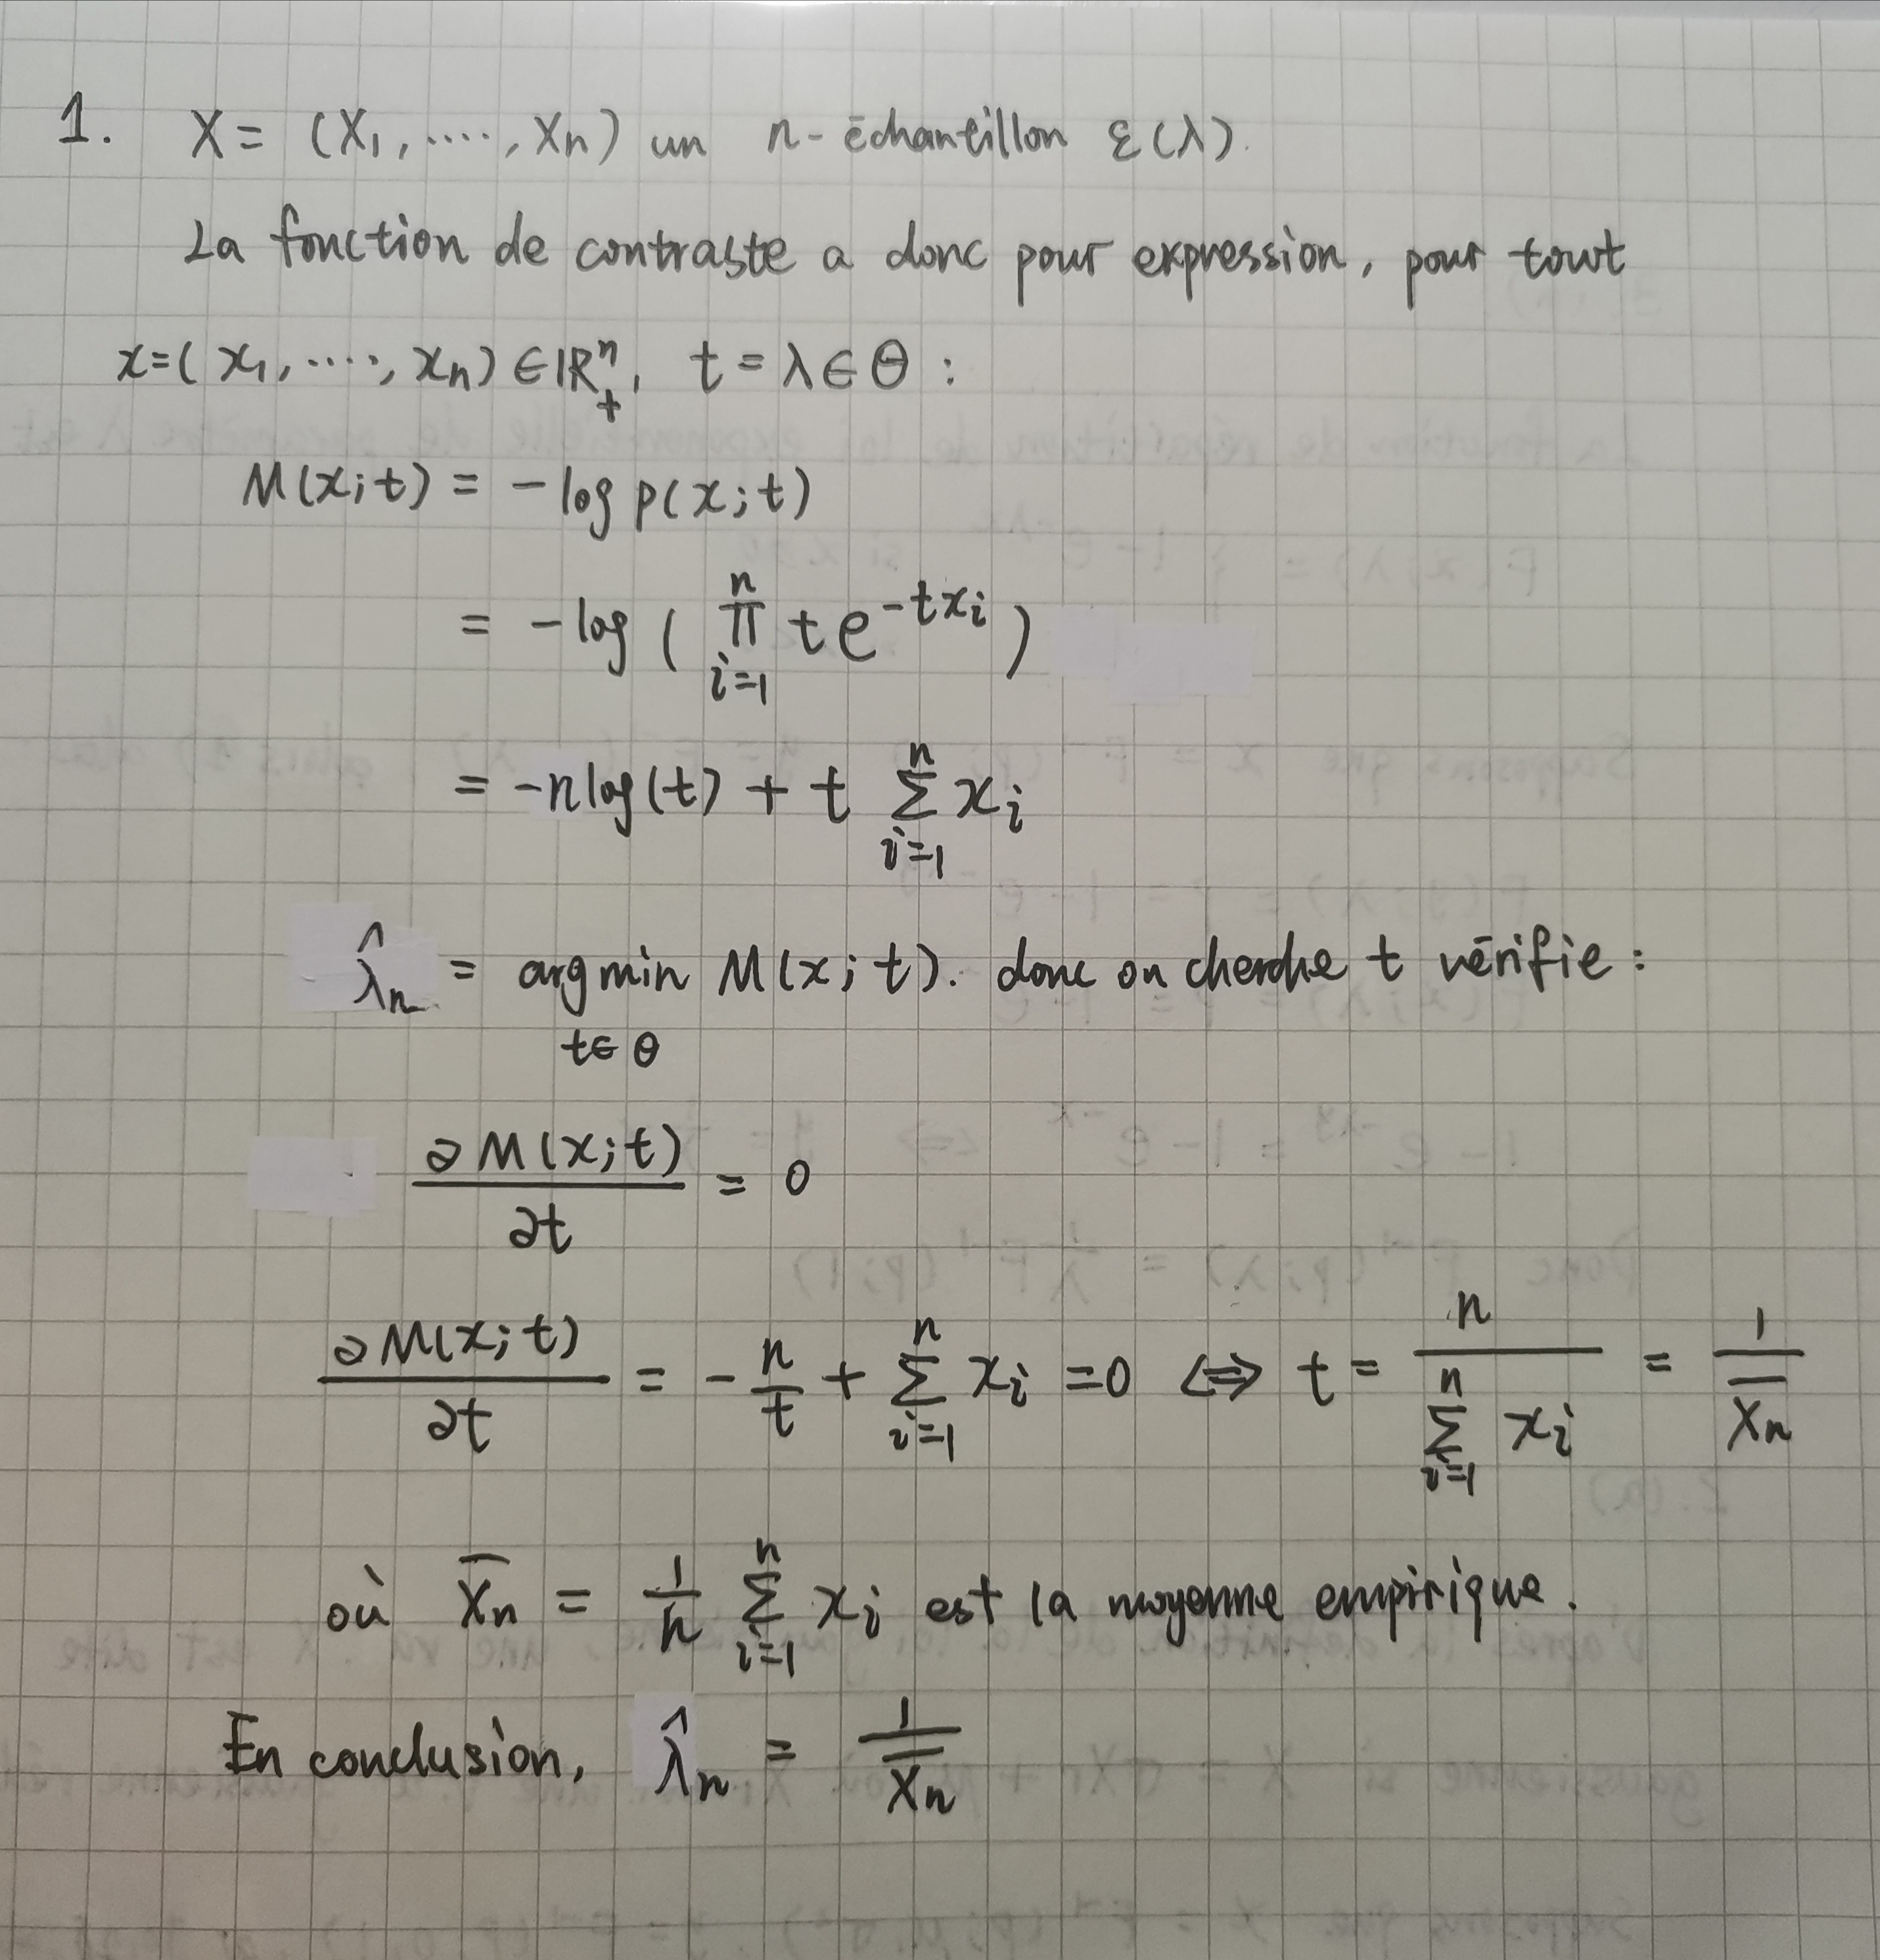 1. X = (X₁, ....., Xn) un n-échantillon ℰ(λ).
La fonction de contraste a donc pour expression, pour tout
x=(x₁, ....., xn) ∈ ℝ₊ⁿ, t = λ ∈ Θ :
M(x;t) = -log p(x;t)
= -log ( ∏_{i=1}^{n} t e^{-txᵢ} )
= -n log(t) + t ∑_{i=1}^{n} xᵢ
λ̂n = argmin_{t∈Θ} M(x;t). donc on cherche t vérifie :
∂M(x;t)/∂t = 0
∂M(x;t)/∂t = -n/t + ∑_{i=1}^{n} xᵢ = 0 ⟺ t = n/∑_{i=1}^{n} xᵢ = 1/X̄n
où X̄n = 1/n ∑_{i=1}^{n} xᵢ est la moyenne empirique.
En conclusion, λ̂n = 1/X̄n